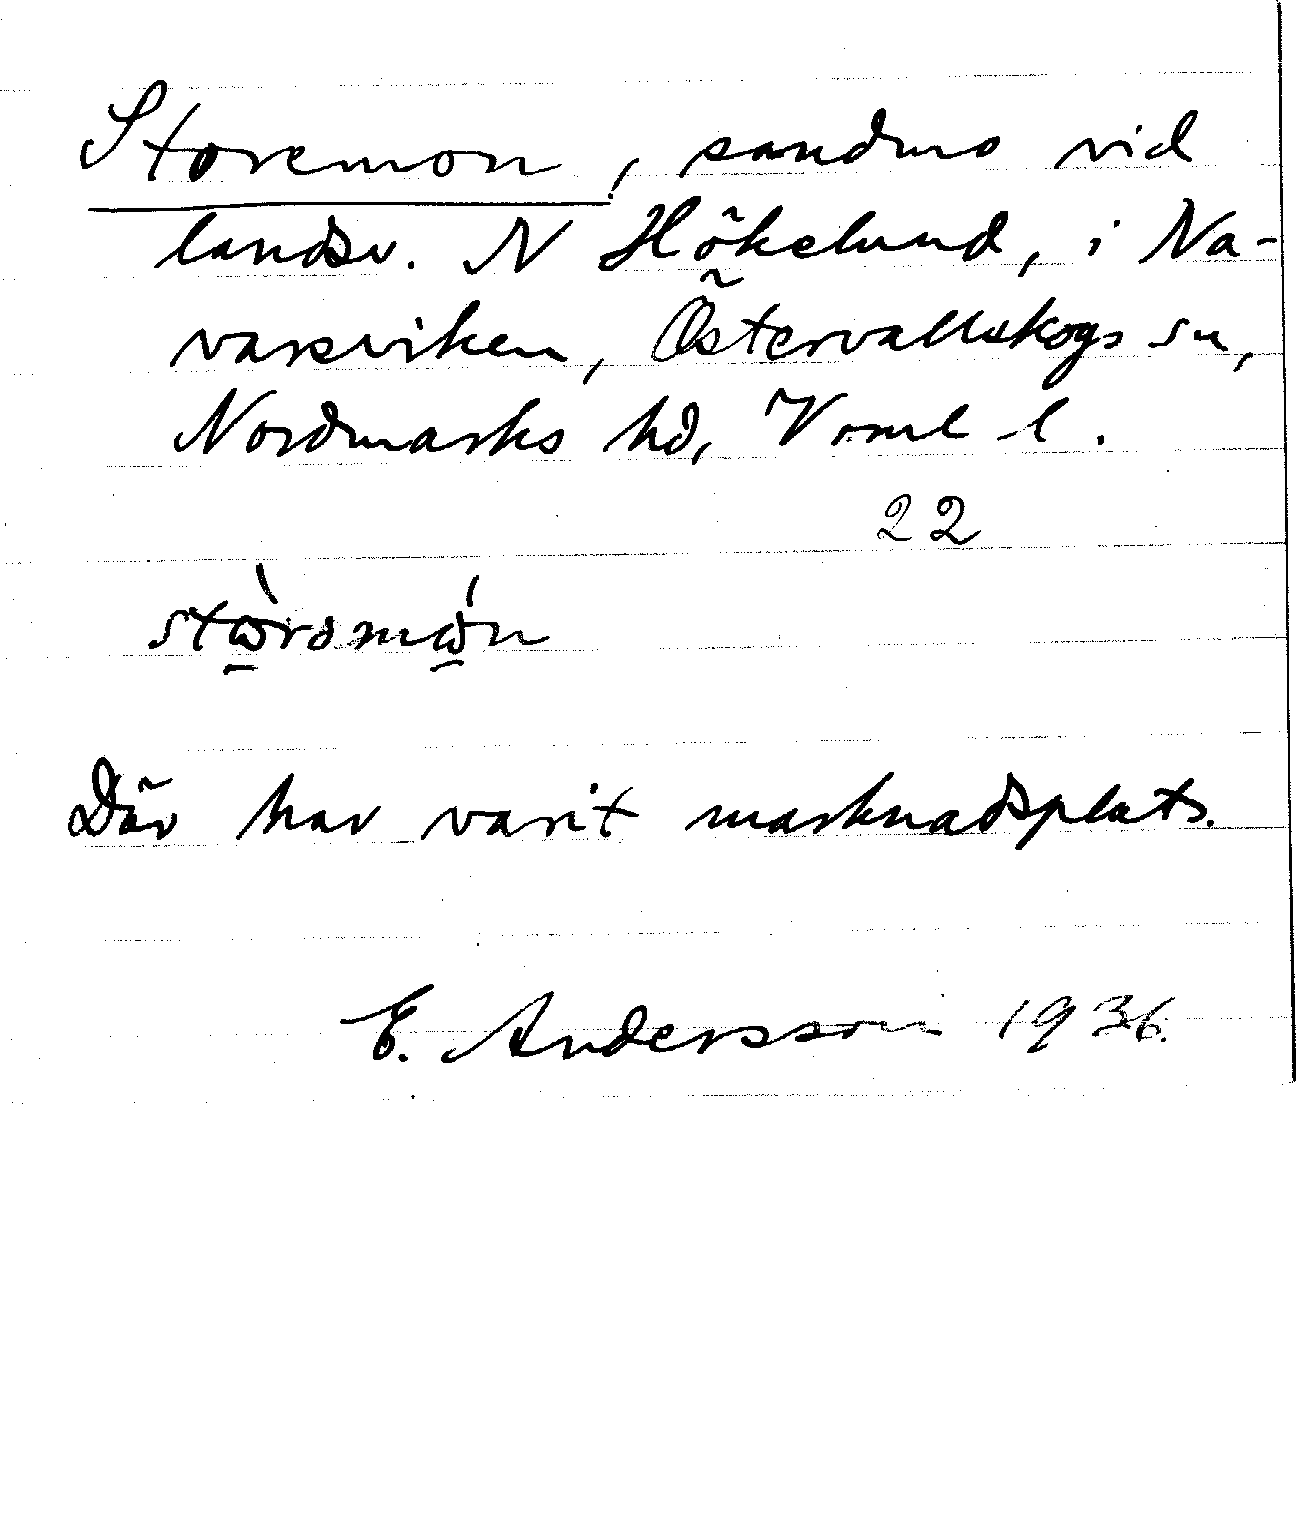 Storemon, sandmo vid
landsv. N Hökelund, i Na-
varsviken, Östervallskogs sn,
Nordmarks hd, Vrml l.
22
Där har varit marknadsplats.
E. Andersson 1936.